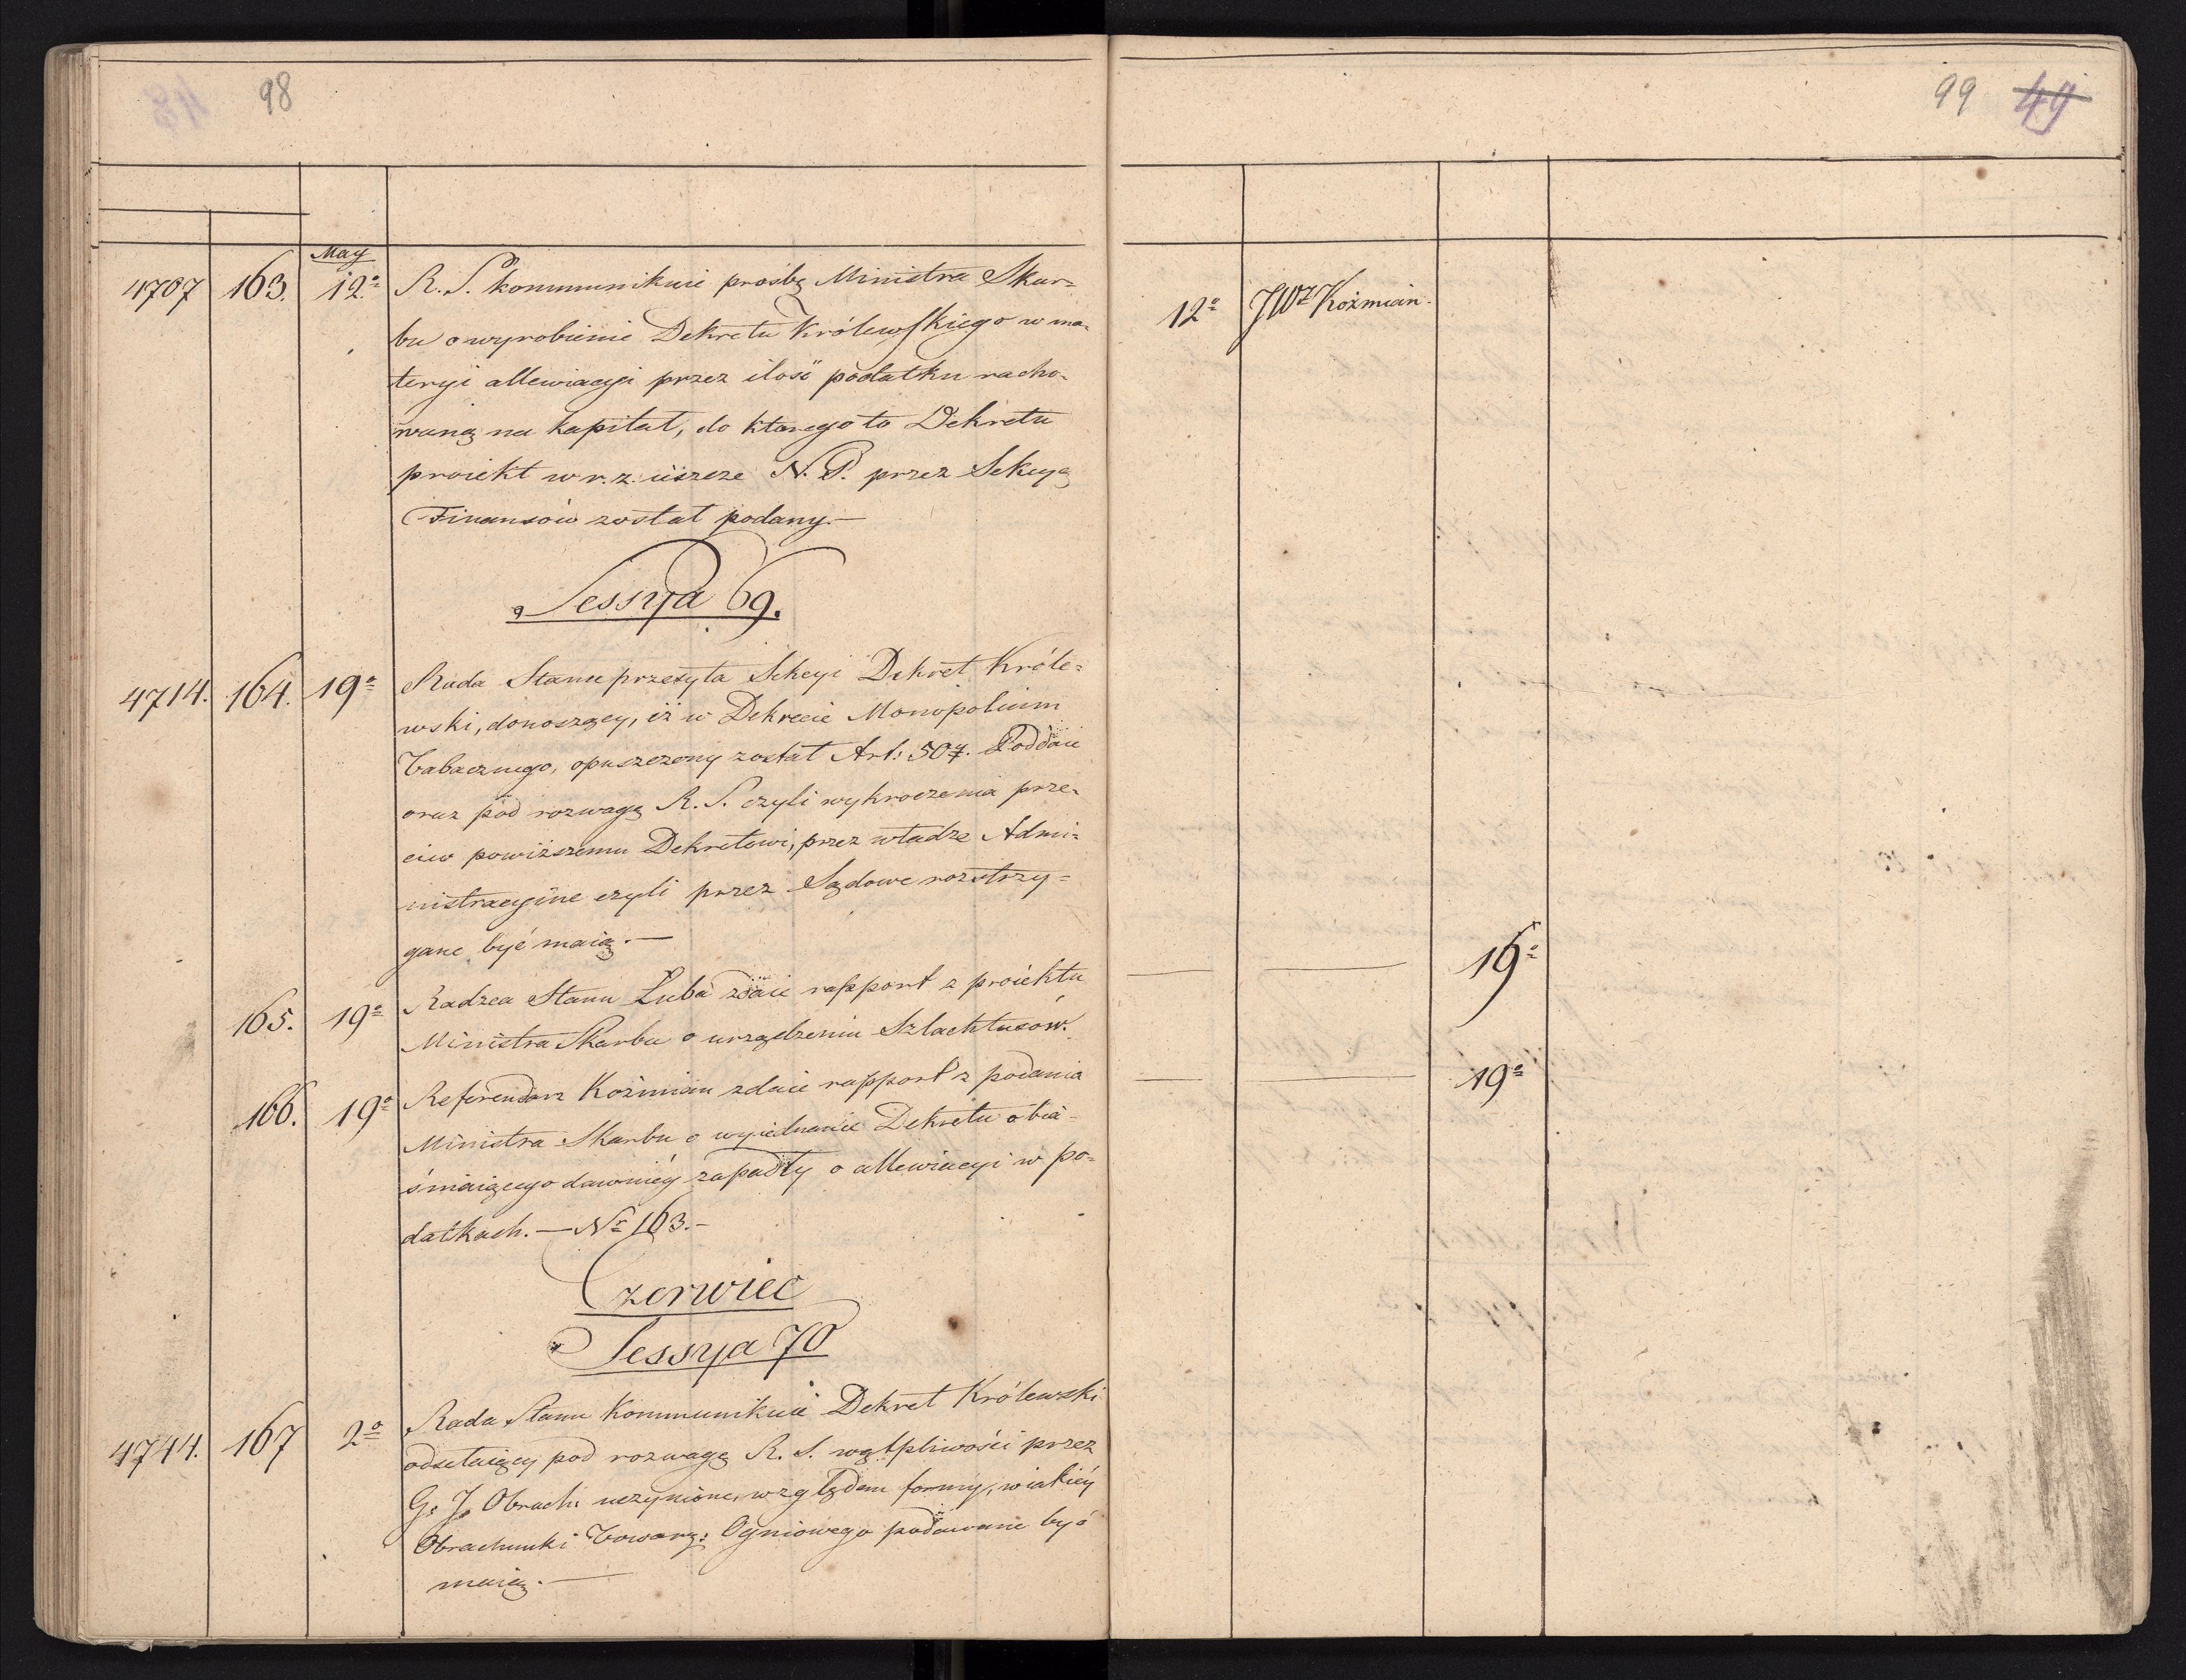 98
99 49
May
4707 163. 12º R. S. kommunikuie prośbę Ministra Skar=
bu o wyrobienie Dekretu Królewskiego w ma=
teryi allewiacyi przez ilość podatku racho=
waną na kapitał, do ktorego to Dekretu
proiekt w r. z. ieszcze N. P. przez Sekcyą
Finansów został podany.—
12º JWz Koźmian.
Sessya 69.
4714. 164. 19º Rada Stanu przesyła Sekcyi Dekret Króle=
wski, donoszący, iż w Dekrecie Monopolium
Tabacznego, opuszczony został Art: 507. Poddaie
oraz pod rozwagę R. S. czyli wykroczenia prze=
ciw powiższemu Dekretowi, przez władze Admi=
nistracyine czyli przez Sądowe rozstrzy=
gane być maią.—
165. 19º Radzca Stanu Łuba zdaie rapport z proiektu
Ministra Skarbu o urządzeniu Szlachtuzów.
— — 19º
166. 19º Referendarz Koźmian zdaie rapport z podania
Ministra Skarbu o wyiednanie Dekretu obia=
śniaiącego dawniéy zapadły o allewiacyi w po=
datkach.— Nr 163.—
— — 19º
Czerwiec
Sessya 70
4744. 167 2º Rada Stanu kommunikuie Dekret Królewski
odsełaiący pod rozwagę R. S. wątpliwości przez
G. J. Obrach: uczynione, względem formy, w iakiéy
Obrachunki Towarz: Ogniowego podawane być
maią.—